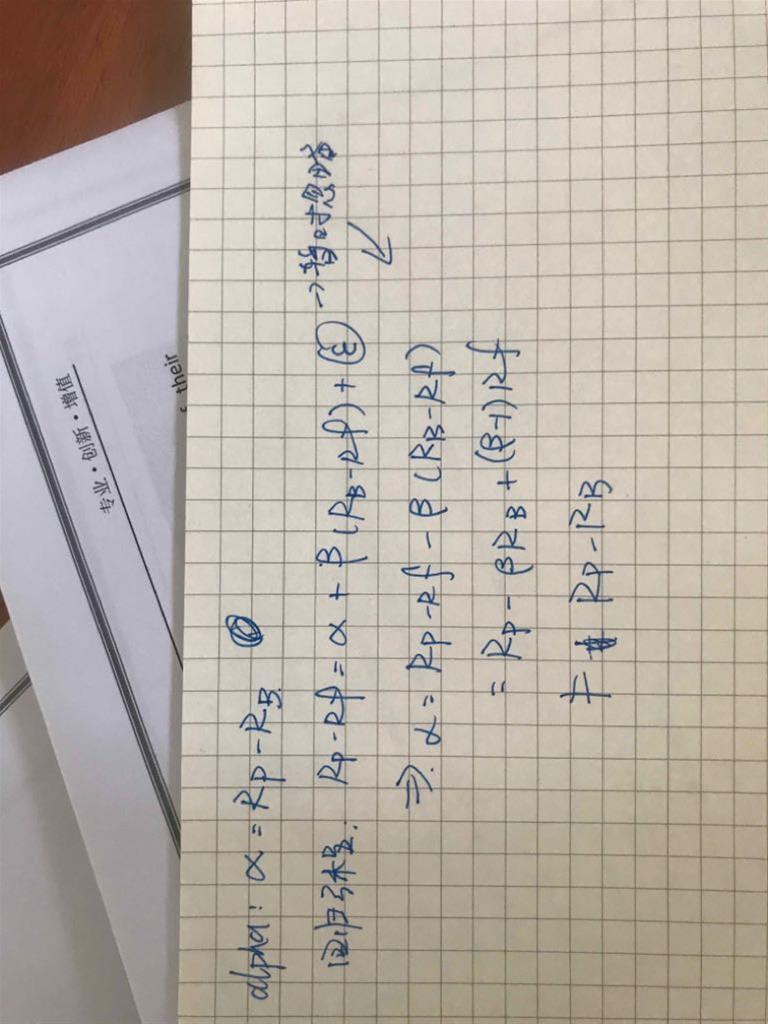 alpha: α = Rp - RB
回归模型. Rp - Rf = α + β(RB - Rf) + ε → 暂时忽略
⇒ α = Rp - Rf - β(RB - Rf)
= Rp - βRB + (β-1)Rf
≠ Rp - RB
专业·创新·增值
their